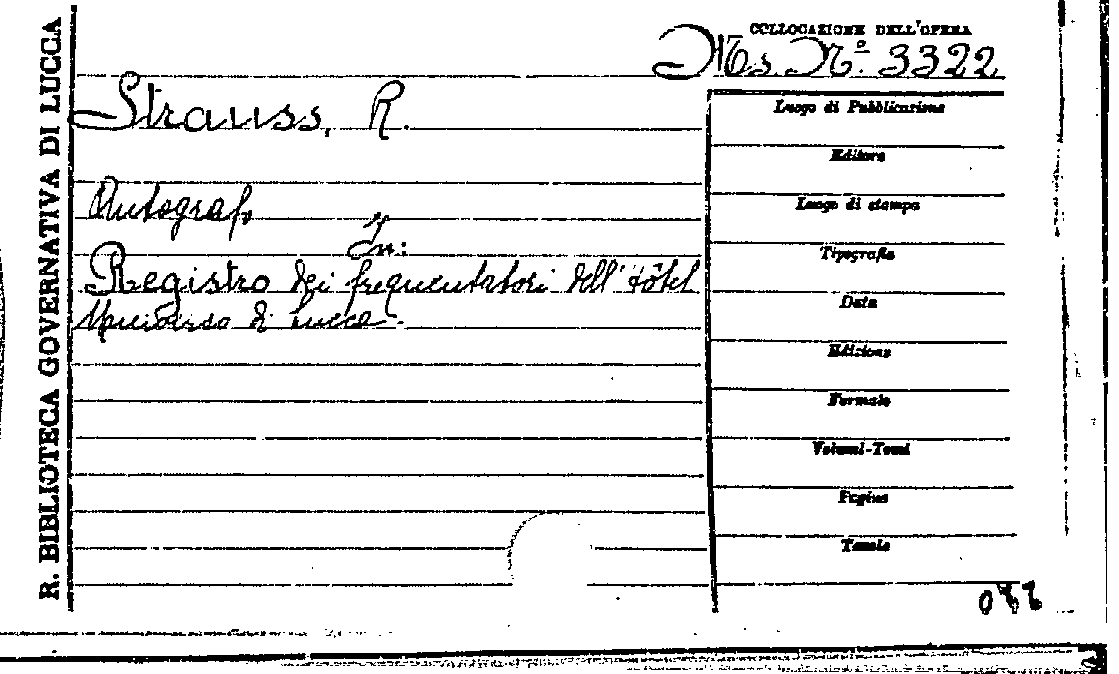 R. BIBLIOTECA GOVERNATIVA DI LUCCA
COLLOCAZIONE DELL'OPERA
Ms. Nº. 3322
Strauss, R.
Autografo
In:
Registro dei frequentatori dell'Hôtel
Universo di Lucca.
Luogo di Pubblicazione
Editore
Luogo di stampa
Tipografia
Data
Edizione
Formato
Volumi-Tomi
Pagine
Tavole